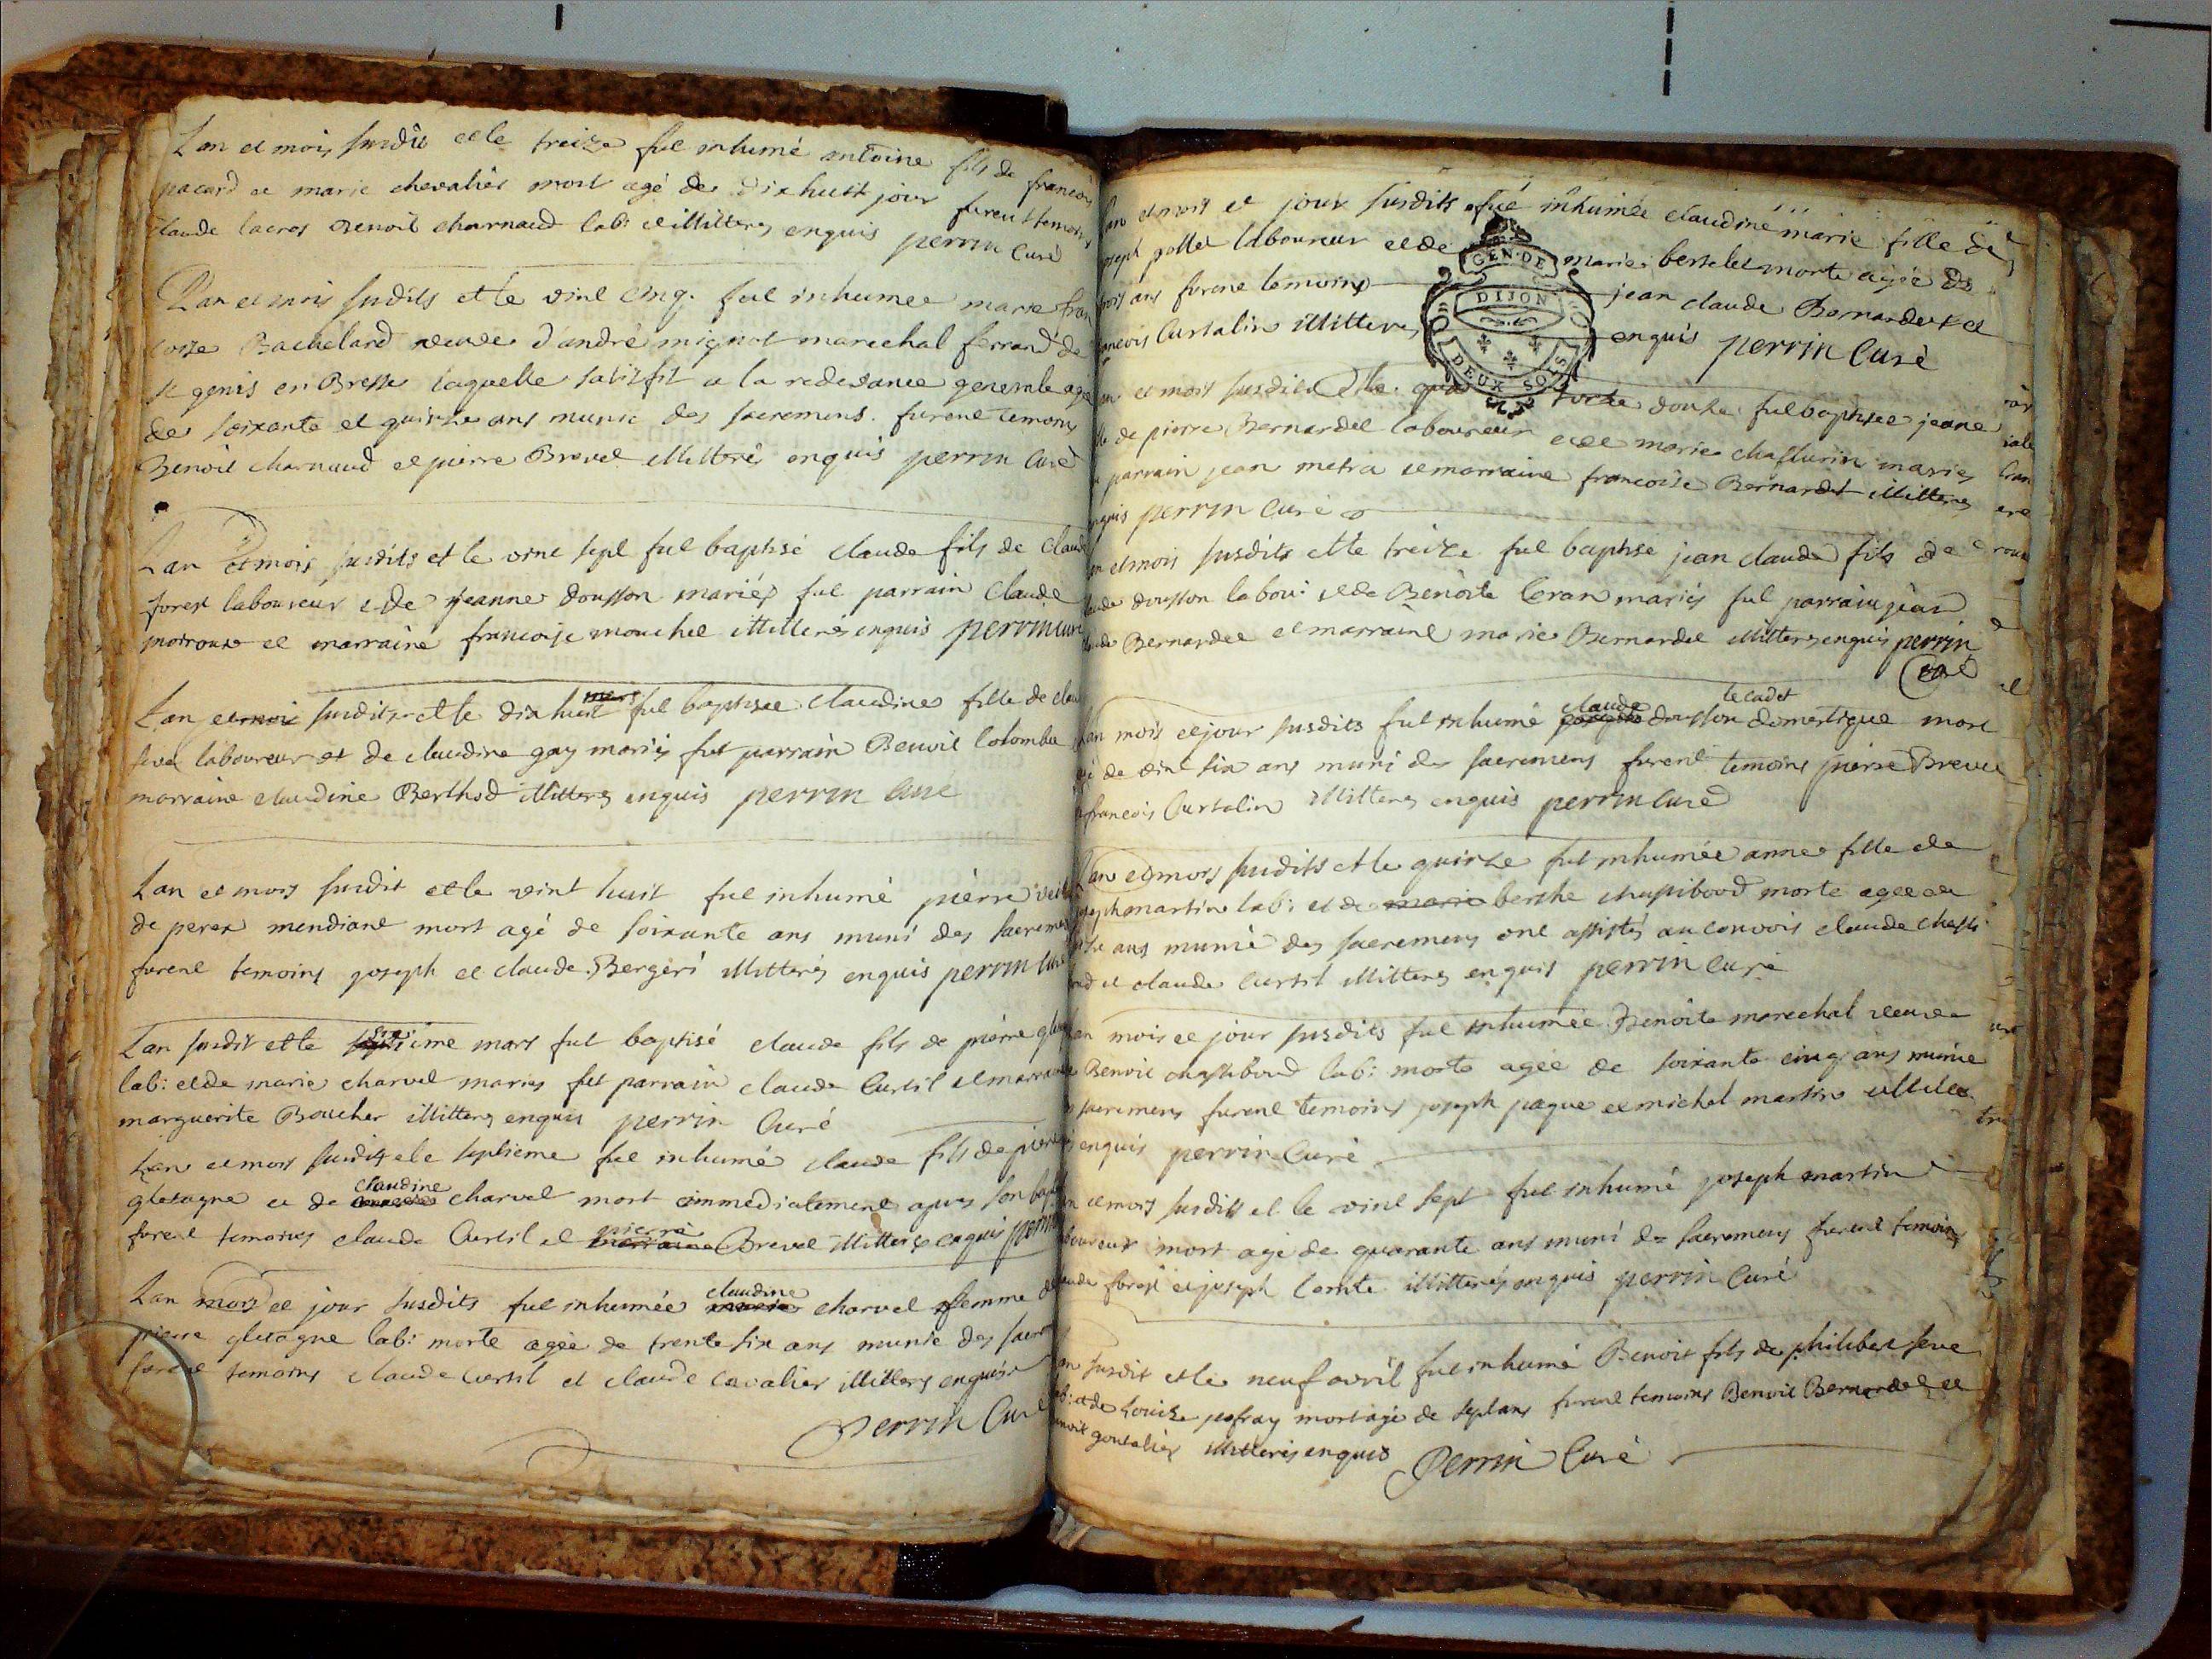 Lan et mois susdit et le treize fut inhumé antoine fils de francois
pacard et marie chevalier mort agé de dix huit jour furent temoins
claude lacros benoit charnaud lab: illitterés enquis perrin curé
Lan et mois susdits et le vint cinq fut inhumée marie fran
coise Bachelard veuve d'andré mignot marechal ferrand de
st genis en Bresse laquelle satisfit a la redevance generale agée
de soixante et quinze ans munie des sacremens furent temoins
Benoit charnaud et pierre Brevet illitterés enquis perrin curé
Lan et mois susdits et le vint sept fut baptisé claude fils de claude
forest laboureur et de jeanne dousson mariés fut parrain claude
moiroux et marraine francoise mouchet illitterés enquis perrin curé
Lan susdit et le dix huit mars fut baptisée claudine fille de
seve laboureur et de claudine gay mariés fut parrain Benoit Colombe
marraine claudine Berthod illitterés enquis perrin curé
Lan et mois susdit et le vint huit fut inhumé pierre
de perex mendiant mort agé de soixante ans muni des sacremens
furent temoins joseph et claude Bergeri illitterés enquis perrin curé
Lan susdit et le mars fut baptisé claude fils de pierre
lab: et de marie charvet mariés fut parrain claude Curtil et marraine
marguerite Boucher illitterés enquis perrin Curé
Lan et mois susdits et le septieme fut inhumé claude fils de pierre
gletagne et de claudine charvet mort immediatement apres son
furent temoins claude Curtil et pierre Brevet illitterés enquis perrin
Lan mois et jour susdits fut inhumée claudine charvet femme de
pierre gletagne lab: morte agée de trente six ans munie des
furent temoins claude Curtil et claude cavalier illitterés enquis
Perrin Curé
et mois et jour susdits fut inhumée claudine marie fille de
joseph pollet laboureur et de marie berthelet morte agée de
trois ans furent temoins jean claude Bernardet et
francois Curtalin illitterés enquis perrin Curé
GEN·DE
DIJON
DEUX SOLS
et mois susdits et le douze fut baptisée jeane
de pierre Bernardet laboureur et de marie mariés
parrain jean metra et marraine francoise Bernardet illitterés
enquis perrin Curé
et mois susdits et le treize fut baptisé jean claude fils de
claude dousson labou: et de Benoite Cran mariés fut parrain jean
claude Bernardet et marraine marie Bernardet illitterés enquis perrin
Curé
Lan mois et jour susdits fut inhumé claude dousson le cadet domestique mort
agé de vint six ans muni des sacremens furent temoins pierre Brevet
francois Curtalin illitterés enquis perrin Curé
Lan et mois susdits et le quinze fut inhumée anne fille de
joseph martin lab: et de berthe morte agee de
ans munie des sacremens ont assistés au convois claude
et claude Curtil illitterés enquis perrin Curé
Lan mois et jour susdits fut inhumée Benoite marechal veuve
Benoit lab: morte agée de soixante cinq ans munie
sacremens furent temoins joseph paque et michel martin
enquis perrin Curé
et mois susdits et le vint sept fut inhumé joseph martin
laboureur mort agé de quarante ans muni de sacremens furent temoins
claude forest et joseph Comte illitterés enquis perrin Curé
susdit et le neuf avril fut inhumé Benoit fils de philibert seve
lab: et de Louise mort agé de sept ans furent temoins Benoit Bernardet et
benoit illitterés enquis Perrin Curé